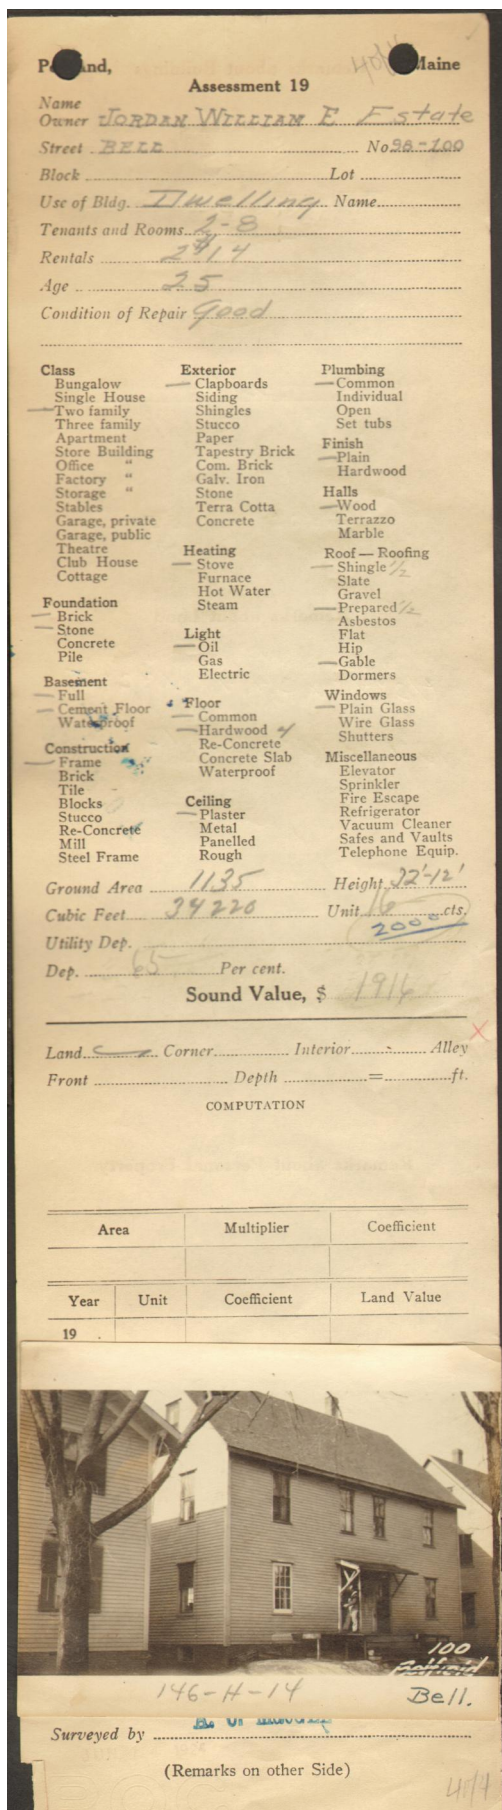 Portland, Maine
Assessment 19
Name
Owner JORDAN WILLIAM E Estate
Street BELL No 98-100
Block Lot
Use of Bldg. Dwelling Name
Tenants and Rooms 2-8
Rentals 2 $14
Age 25
Condition of Repair Good
Class
Bungalow
Single House
Two family
Three family
Apartment
Store Building
Office "
Factory "
Storage "
Stables
Garage, private
Garage, public
Theatre
Club House
Cottage
Foundation
Brick
Stone
Concrete
Pile
Basement
Full
Cement Floor
Waterproof
Construction
Frame
Brick
Tile
Blocks
Stucco
Re-Concrete
Mill
Steel Frame
Exterior
Clapboards
Siding
Shingles
Stucco
Paper
Tapestry Brick
Com. Brick
Galv. Iron
Stone
Terra Cotta
Concrete
Heating
Stove
Furnace
Hot Water
Steam
Light
Oil
Gas
Electric
Floor
Common
Hardwood 4
Re-Concrete
Concrete Slab
Waterproof
Ceiling
Plaster
Metal
Panelled
Rough
Plumbing
Common
Individual
Open
Set tubs
Finish
Plain
Hardwood
Halls
Wood
Terrazzo
Marble
Roof — Roofing
Shingle 1/2
Slate
Gravel
Prepared 1/2
Asbestos
Flat
Hip
Gable
Dormers
Windows
Plain Glass
Wire Glass
Shutters
Miscellaneous
Elevator
Sprinkler
Fire Escape
Refrigerator
Vacuum Cleaner
Safes and Vaults
Telephone Equip.
Ground Area 1135 Height 32'-12'
Cubic Feet 34220 Unit 16 cts.
2000
Utility Dep.
Dep. 65 Per cent.
Sound Value, $ 1916
Land Corner Interior Alley
Front Depth = ft.
COMPUTATION
Area Multiplier Coefficient
Year Unit Coefficient Land Value
19
100
146-H-14 Bell.
Surveyed by
(Remarks on other Side)